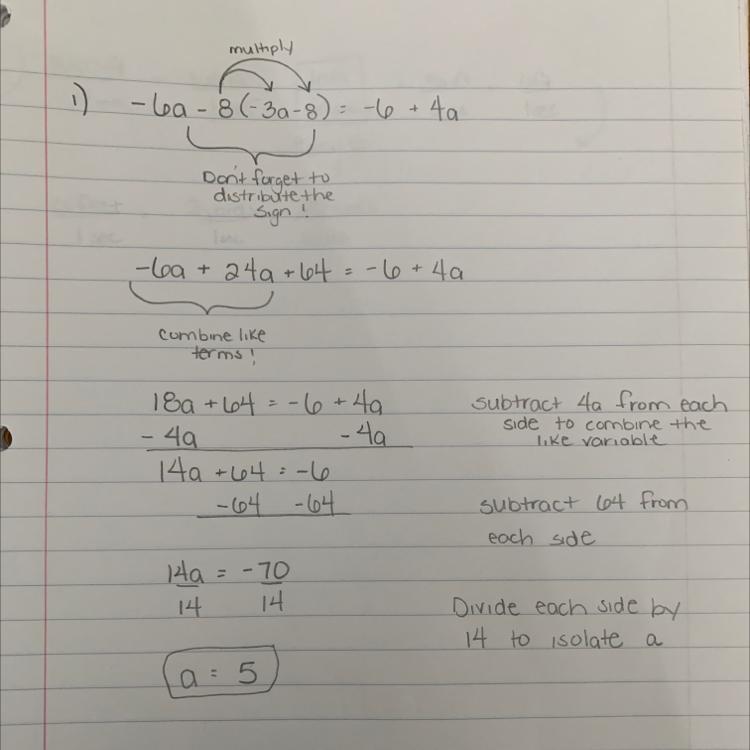 multiply
1) -6a - 8(-3a-8) = -6 + 4a
Don't forget to
distribute the
sign!
-6a + 24a + 64 = -6 + 4a
combine like
terms!
18a + 64 = -6 + 4a
- 4a - 4a
subtract 4a from each
side to combine the
like variable
14a + 64 = -6
-64 -64
subtract 64 from
each side
14a = -70
14 14
Divide each side by
14 to isolate a
a = 5